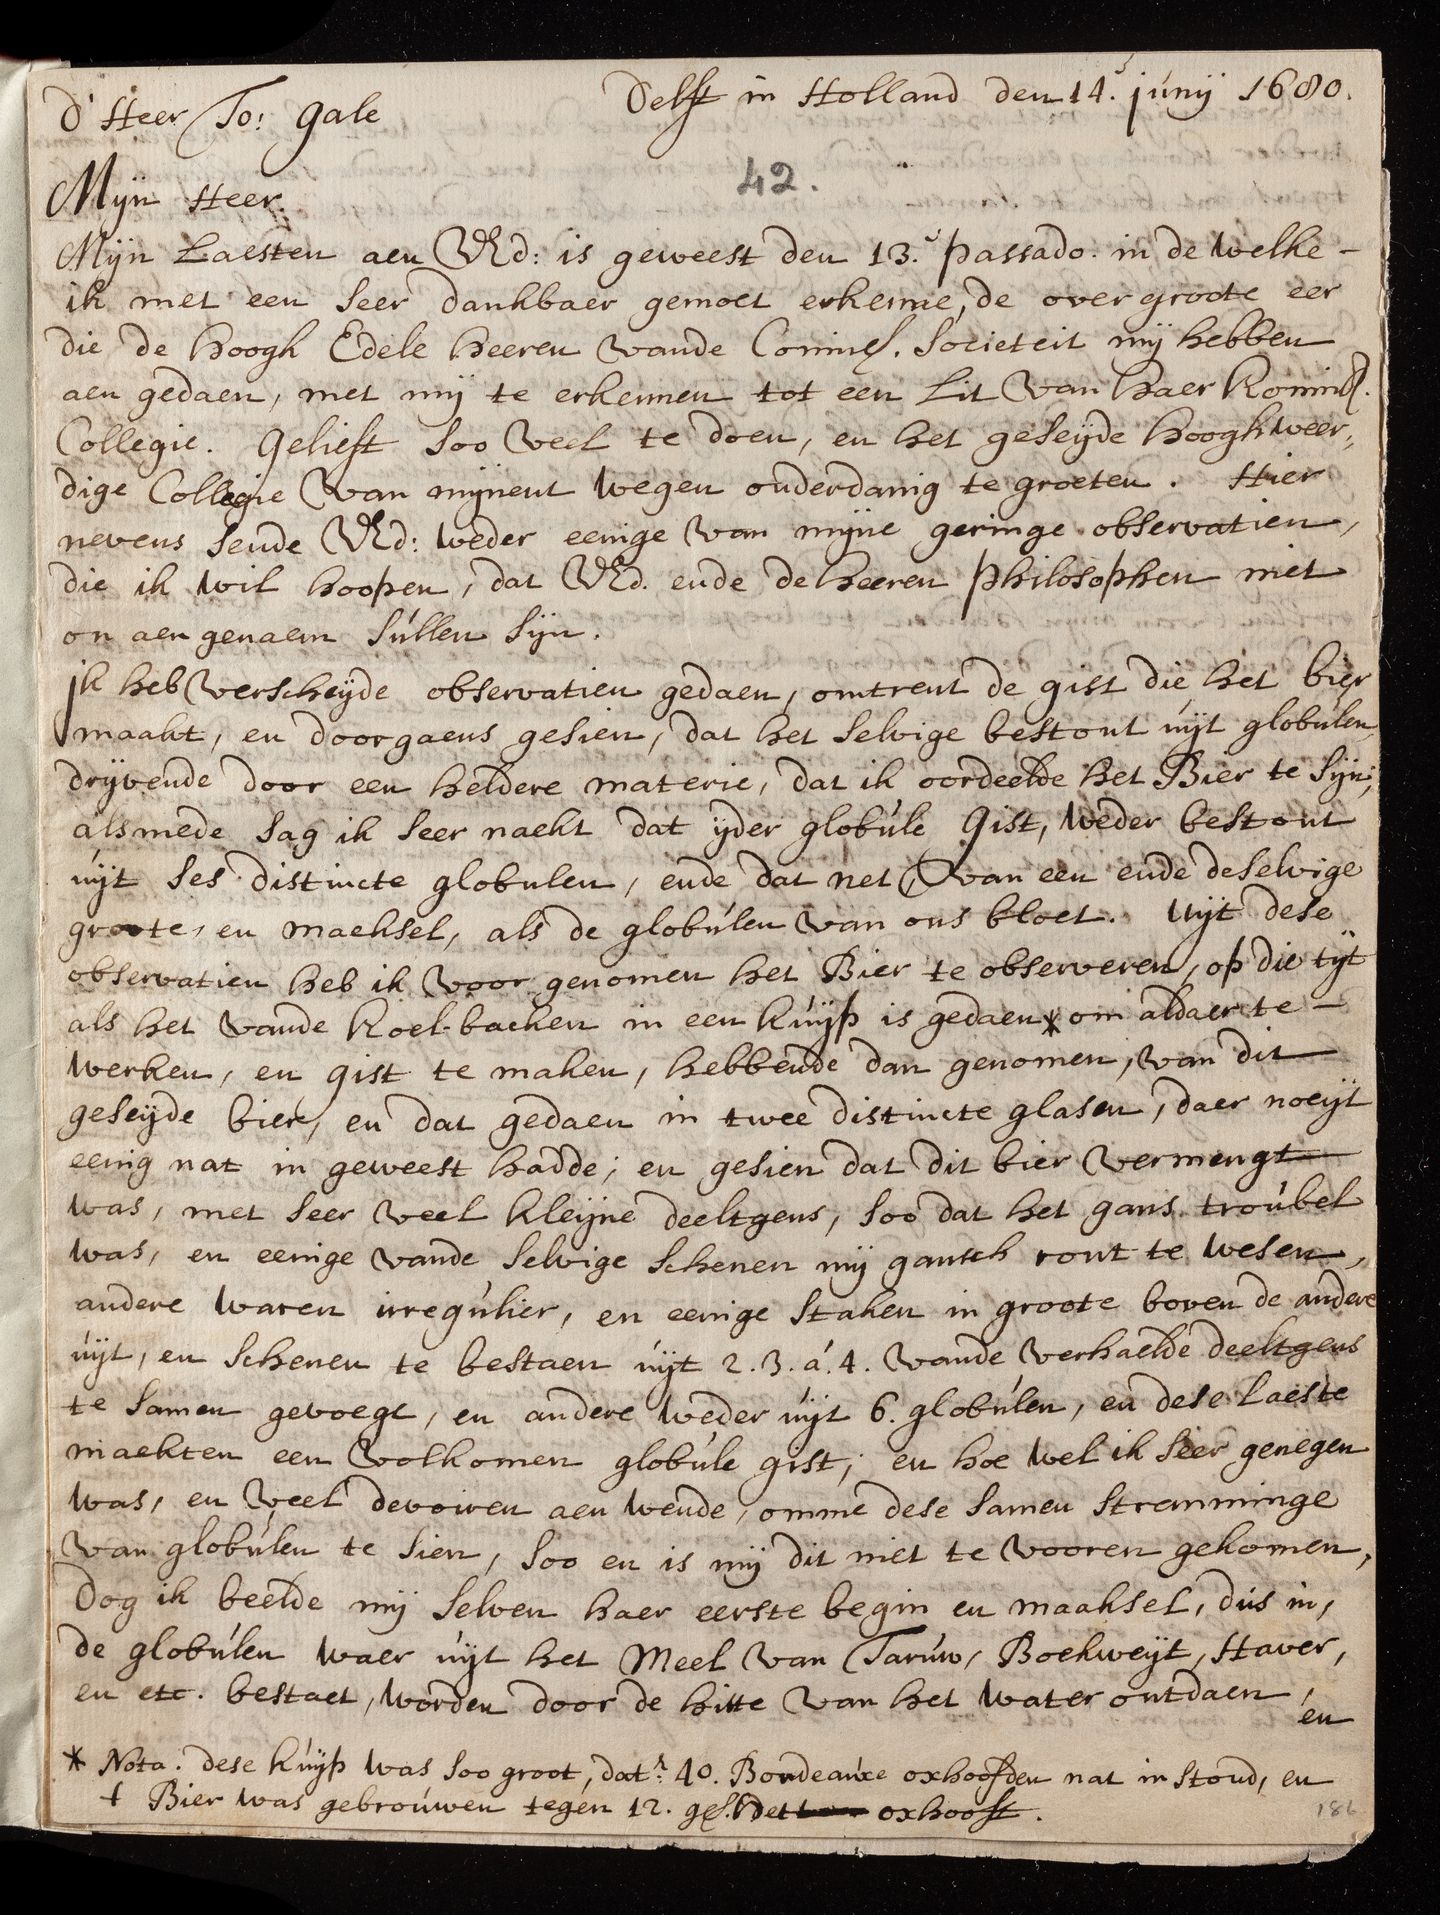 Delft in Holland den 14.e junij 1680.
D' Heer To: gale
42.
Mijn Heer.
Mijn Laesten aen VEd: is geweest den 13.e passado. in de welke -
ik met een seer dankbaer gemoet erkenne, de over groote eer
die de hoogh Edele heeren vande Coninl. Societeit mij hebben
aen gedaen, met mij te erkennen tot een Lit van haer Koninkl.
Collegie. Gelieft soo veel te doen, en het geseijde hoogh weer,
dige Collegie van mijnent wegen onderdanig te groeten. Hier
nevens sende VEd: weder eenige van mijne geringe observatien,
die ik wil hoopen, dat VEd. ende de heeren philosophen niet
on aen genaem súllen sijn.
jk heb verscheijde observatien gedaen, omtrent de gist die het bier
maakt, en doorgaens gesien, dat het selvige bestont úijt globúlen,
drijvende door een heldere materie, dat ik oordeelde het Bier te sijn;
alsmede sag ik seer naekt dat ijder globúle Gist, weder bestont
úijt ses distincte globulen, ende dat net van een ende deselvige
groote, en maeksel, als de globúlen van ons bloet. Uijt dese
observatien heb ik voor genomen het Bier te observeren, op die tijt
als het vande koel-backen in een kúijp is gedaen * om aldaer te -
werken, en gist te maken, hebbende dan genomen, van dit
geseijde bier, en dat gedaen in twee distincte glasen, daer noeijt
eenig nat in geweest hadde; en gesien dat dit bier vermengt
was, met seer veel kleijne deeltgens, soo dat het gans troúbel
was, en eenige vande selvige schenen mij gantsch ront te wesen,
andere waren irregúlier, en eenige staken in groote boven de andere
úijt, en schenen te bestaen úijt 2. 3. á. 4. vande verhaelde deeltgens
te samen gevoegt, en andere weder úijt 6. globúlen, en dese laeste
maekten een volkomen globúle gist; en hoe wel ik seer genegen
was, en veel devoiren aen wende, omme dese samen stremminge
van globúlen te sien, soo en is mij dit niet te vooren gekomen,
Dog ik beelde mij selven haer eerste begin en maaksel, dús in,
de globúlen waer úijt het Meel van Tarúw, Boekweijt, Haver,
en etc. bestaet, worden door de hitte van het water ontdaen,
en
* Nota. dese kúijp was soo groot, dat'r 40. Bordeaúxe oxhoofden nat in stond, en
t Bier was gebroúwen tegen 12. gl. het oxhooft.
186